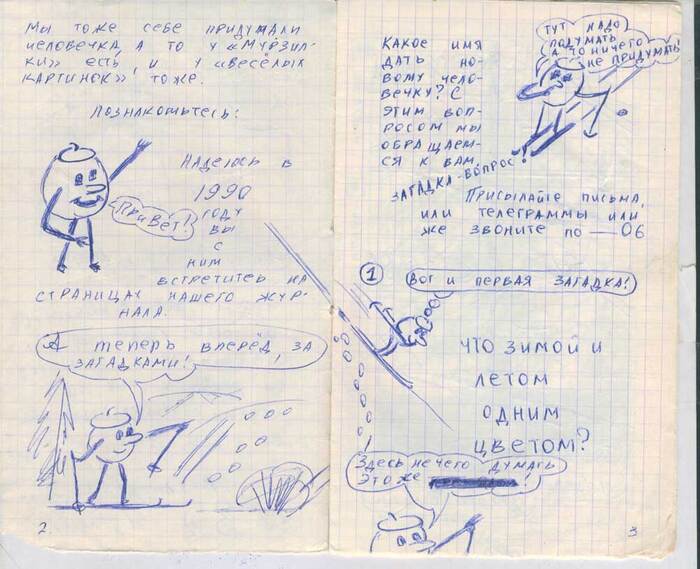 Мы тоже себе придумали
человечка, а то у «Мурзил-
ки» есть, и у «весёлых
картинок» тоже.
Познакомьтесь:
Привет!
Надеюсь в
1990
году
вы
с
ним
встретитесь на
страницах нашего жур-
нала.
А теперь вперёд, за
загадками!
2
Какое имя
дать но-
вому чело-
вечку? С
этим воп-
росом мы
обращаем-
ся к вам.
Тут надо
подумать
а то ничего
не придумать!
Загадка-вопрос!
Присылайте письма,
или телеграммы или
же звоните по — 06
1
Вот и первая загадка!
Что зимой и
летом
одним
цветом?
Здесь не чего думать
Это же !
3